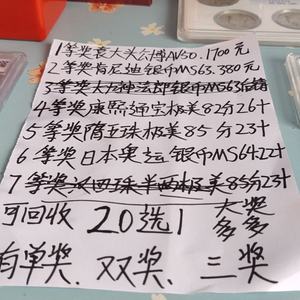 1等奖袁大头公博AV50.1700元
2等奖肯尼迪银币MS63.380元
4等奖康熙通宝极美82分26个
5等奖隋五珠极美85分23个
6等奖日本奥运银币MS64.22个
7等奖汉四珠半两极美85分23个
可回收 20选1 大奖多多
有单奖.双奖.三奖